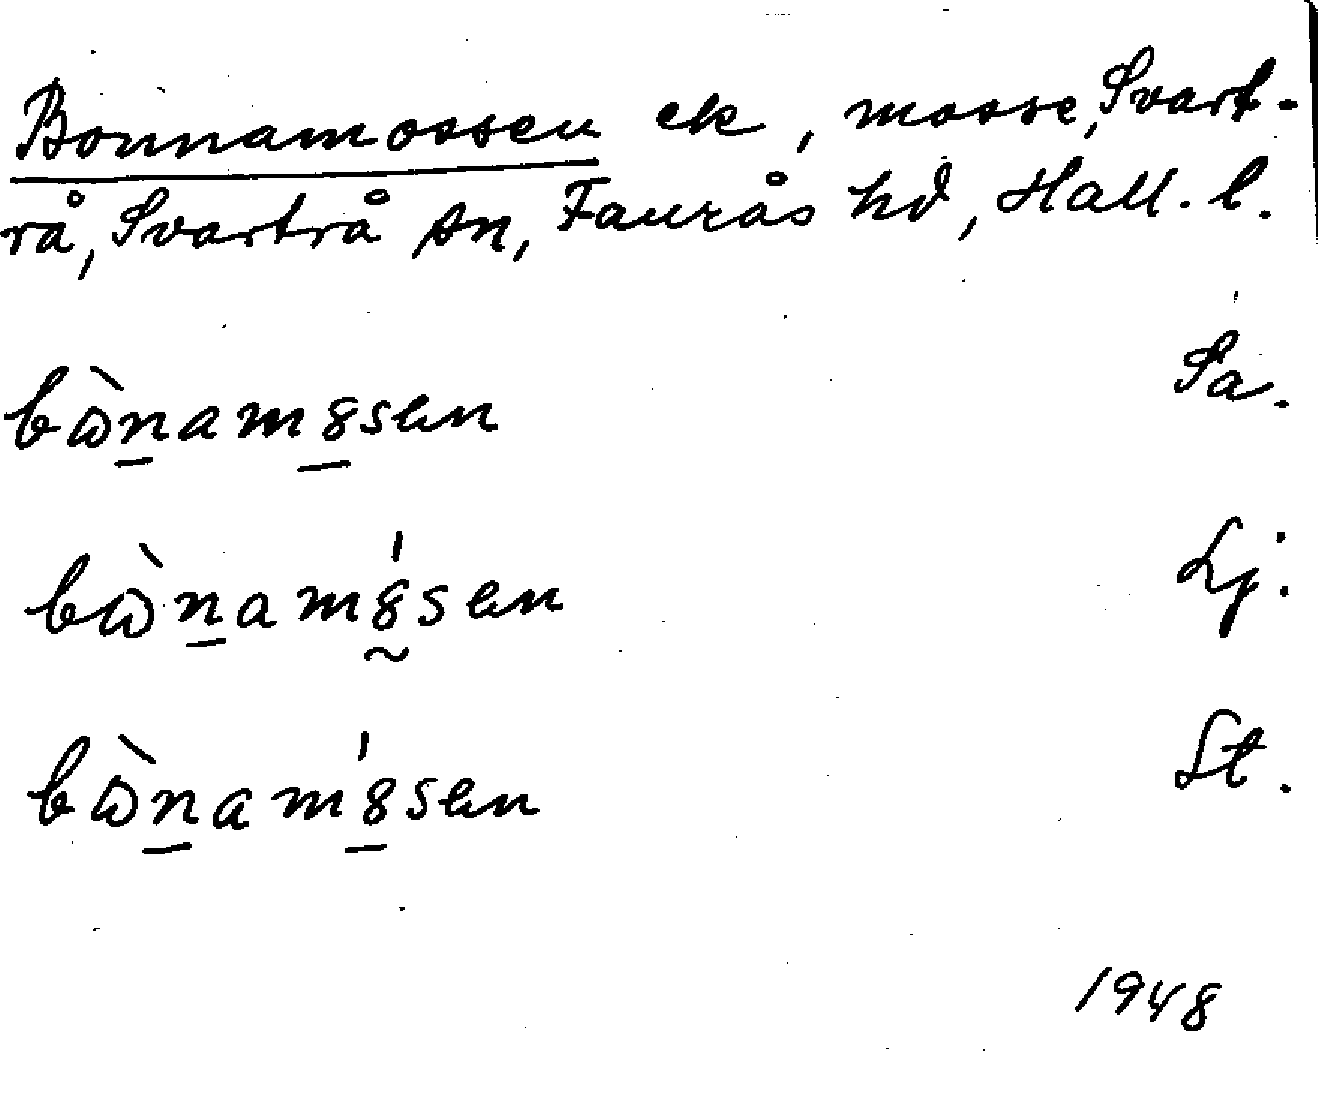 Bonnamossen ek, mosse, Svart-
rå, Svartrå sn, Faurås hd, Hall. l.
bὼn̲am̲8̲sen Sa.
bὼn̲am8̰́sen Lj.
bὼn̲am8̲́sen St.
1948